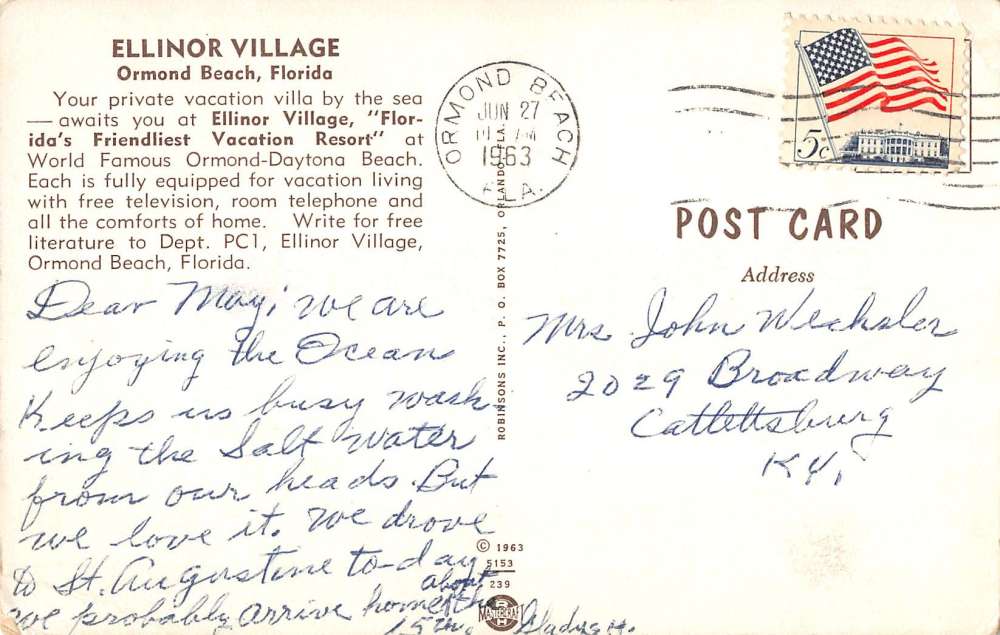 ELLINOR VILLAGE
Ormond Beach, Florida
Your private vacation villa by the sea
— awaits you at Ellinor Village, "Flor-
ida's Friendliest Vacation Resort" at
World Famous Ormond-Daytona Beach.
Each is fully equipped for vacation living
with free television, room telephone and
all the comforts of home. Write for free
literature to Dept. PC1, Ellinor Village,
Ormond Beach, Florida.
Dear May, we are
enjoying the Ocean
Keeps us busy wash-
ing the Salt water
from our heads. But
we love it. We drove
to St. Augustine to-day
we probably arrive home about the
15th. Gladys H.
ORMOND BEACH
JUN 27
1963
FLA.
5c
POST CARD
Address
Mrs John Wechsler
2029 Broadway
Catlettsburg
Ky.
ROBINSONS INC., P. O. BOX 7725, ORLANDO, FLA.
© 1963
5153
239